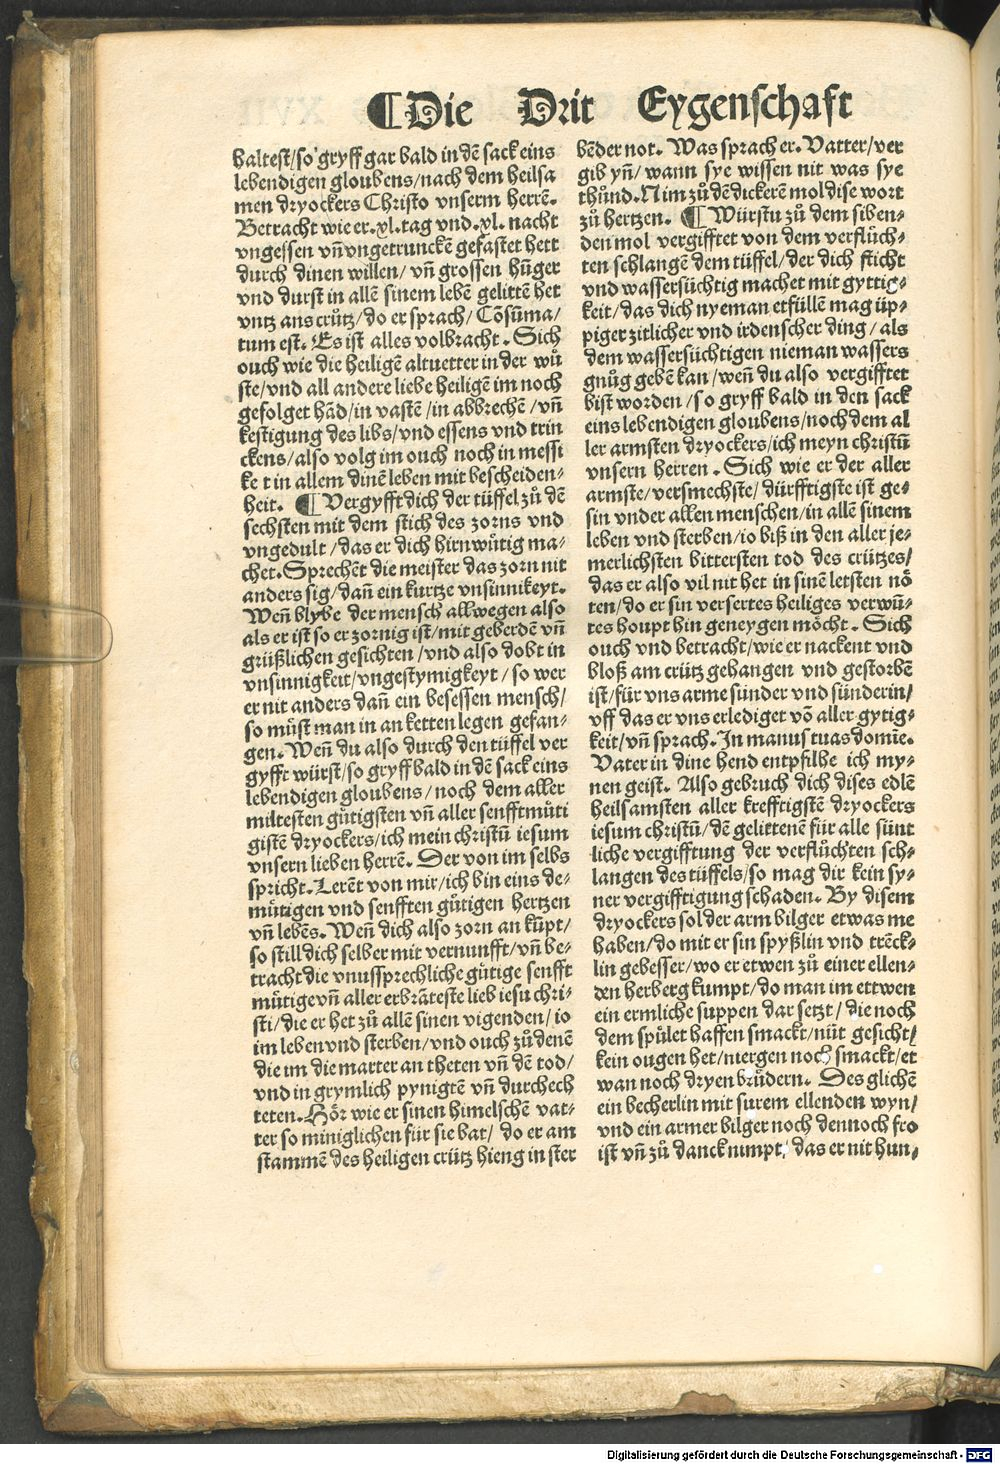 ¶ Die Drit Eygenschaft
haltest/so gryff gar bald in dē sack eins
lebendigen gloubens/nach dem heilsa
men dryockers Christo vnserm herrē.
Betracht wie er.xl.tag vnd.xl.nacht
vngessen vn̄ vngetrunckē gefastet hett
durch dinen willen/vn̄ grossen hūger
vnd durst in allē sinem lebē gelittē het
vntz ans crütz/do er sprach/Cōsūma/
tum est. Es ist alles volbracht. Sich
ouch wie die heiligē altuetter in der wuͤ
ste/vnd all andere liebe heiligē im noch
gefolget hād/in vastē/in abbrechē/vn̄
kestigung des libs/vnd essens vnd trin
ckens/also volg im ouch noch in messi
ke t in allem dinē leben mit bescheiden⸗
heit. ¶ Vergyfft dich der tüffel zuͦ dē
sechsten mit dem stich des zorns vnd
vngedult/das er dich hirnwuͤtig ma⸗
chet. Sprechēt die meister das zorn nit
anders sig/dan̄ ein kurtze vnsinnikeyt.
Wen̄ blybe der mensch allwegen also
als er ist so er zornig ist/mit geberdē vn̄
grüßlichen gesichten/vnd also dobt in
vnsinnigkeit/vngestymigkeyt/so wer
er nit anders dan̄ ein besessen mensch/
so muͤst man in an ketten legen gefan⸗
gen. Wen̄ du also durch den tüffel ver
gyfft würst/so gryff bald in dē sack eins
lebendigen gloubens/noch dem aller
miltesten guͤtigsten vn̄ aller senfftmuͤti
gistē dryockers/ich mein christū iesum
vnsern lieben herrē. Der von im selbs
spricht. Lerēt von mir/ich bin eins de⸗
muͤtigen vnd senfften guͤtigen hertzen
vn̄ lebēs. Wen̄ dich also zorn an kūpt/
so still dich selber mit vernunfft/vn̄ be⸗
tracht die vnussprechliche guͤtige senfft
muͤtige vn̄ aller erbrāteste lieb iesu chri⸗
sti/die er het zuͦ allē sinen vigenden/io
im leben vnd sterben/vnd ouch zuͦ denē
die im die marter an theten vn̄ dē tod/
vnd in grymlich pynigtē vn̄ durchech
teten. Hoͤr wie er sinen himelschē vat⸗
ter so miniglichen für sie bat/do er am
stammē des heiligen crütz hieng in ster
bēder not. Was sprach er. Vatter/ver
gib yn̄/wann sye wissen nit was sye
thuͤnd. Nim zuͦ dē dickerē mol dise wort
zuͦ hertzen. ¶ Würstu zuͦ dem siben⸗
den mol vergifftet von dem verfluͤch⸗
ten schlangē dem tüffel/der dich sticht
vnd wassersüchtig machet mit gyttig⸗
keit/das dich nyeman etfüllē mag üp⸗
piger zitlicher vnd irdenscher ding/als
dem wassersüchtigen nieman wassers
gnuͦg gebē kan/wen̄ du also vergifftet
bist worden/so gryff bald in den sack
eins lebendigen gloubens/noch dem al
ler armsten dryockers/ich meyn christū
vnsern herren. Sich wie er der aller
armste/versmechste/dürfftigste ist ge⸗
sin vnder allen menschen/in allē sinem
leben vnd sterben/io biß in den aller je⸗
merlichsten bittersten tod des crützes/
das er also vil nit het in sinē letsten nō
ten/do er sin versertes heiliges verwū⸗
tes houpt hin geneygen moͤcht. Sich
ouch vnd betracht/wie er nackent vnd
bloß am crütz gehangen vnd gestorbē
ist/für vns arme sünder vnd sünderin/
vff das er vns erlediget vō aller gytig⸗
keit/vn̄ sprach. In manus tuas domīe.
Vater in dine hend entpfilhe ich my⸗
nen geist. Also gebruch dich dises edlē
heilsamsten aller krefftigstē dryockers
iesum christū/dē gelittenē für alle sünt
liche vergifftung der verfluͤchten sch⸗
langen des tüffels/so mag dir kein sy⸗
ner vergifftigung schaden. By disem
dryockers sol der arm bilger etwas me
haben/do mit er sin spyßlin vnd trēck⸗
lin gebesser/wo er etwen zuͦ einer ellen⸗
den herberg kumpt/do man im ettwen
ein ermliche suppen dar setzt/die noch
dem spuͤlet haffen smackt/nüt gesicht/
kein ougen het/niergen noch smackt/et
wan noch dryen bruͤdern. Des glichē
ein becherlin mit surem ellenden wyn/
vnd ein armer bilger noch dennoch fro
ist vn̄ zuͦ danck nimpt/das er nit hun⸗
Digitalisierung gefördert durch die Deutsche Forschungsgemeinschaft - DFG